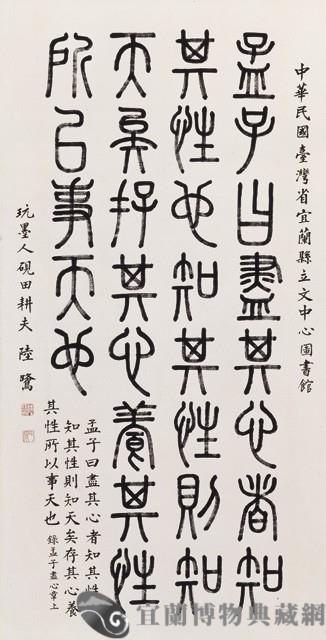 中華民國臺灣省宜蘭縣立文中心圖書館
孟子曰盡其心者知
其性也知其性則知
天矣存其心養其性
所以事天也
孟子曰盡其心者知其性
知其性則知天矣存其心養
其性所以事天也 錄孟子盡心章上
玩墨人硯田耕夫 陸鷺
宜蘭博物典藏網